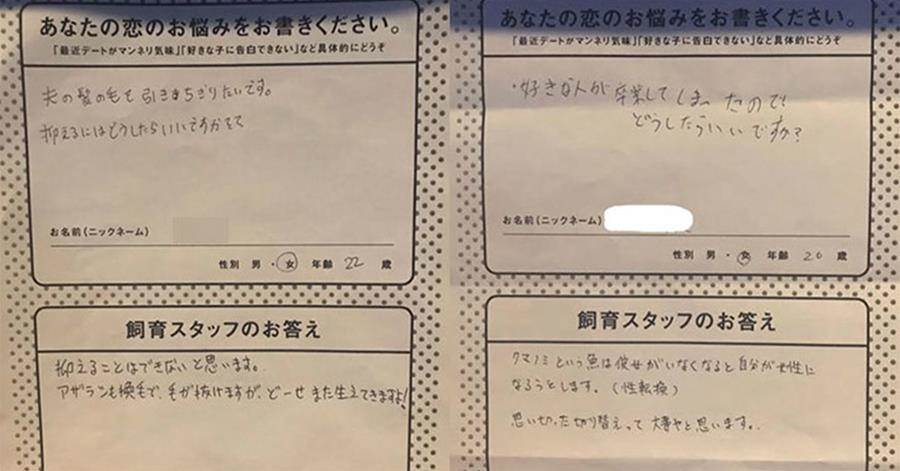 あなたの恋のお悩みをお書きください。
「最近デートがマンネリ気味」「好きな子に告白できない」など具体的にどうぞ
夫の髪の毛を引きちぎりたいです。
抑えるにはどうしたらいいですか
お名前(ニックネーム)
性別 男・女 年齢 22 歳
飼育スタッフのお答え
抑えることはできないと思います。
アザラシも換毛で、毛が抜けますが、どーせまた生えてきますよ!
あなたの恋のお悩みをお書きください。
「最近デートがマンネリ気味」「好きな子に告白できない」など具体的にどうぞ
・好きな人が卒業してしまったので
どうしたらいいですか?
お名前(ニックネーム)
性別 男・女 年齢 20 歳
飼育スタッフのお答え
クマノミという魚は彼女がいなくなると自分が女性に
なろうとします。(性転換)
思い切った切り替えって大事やと思います。